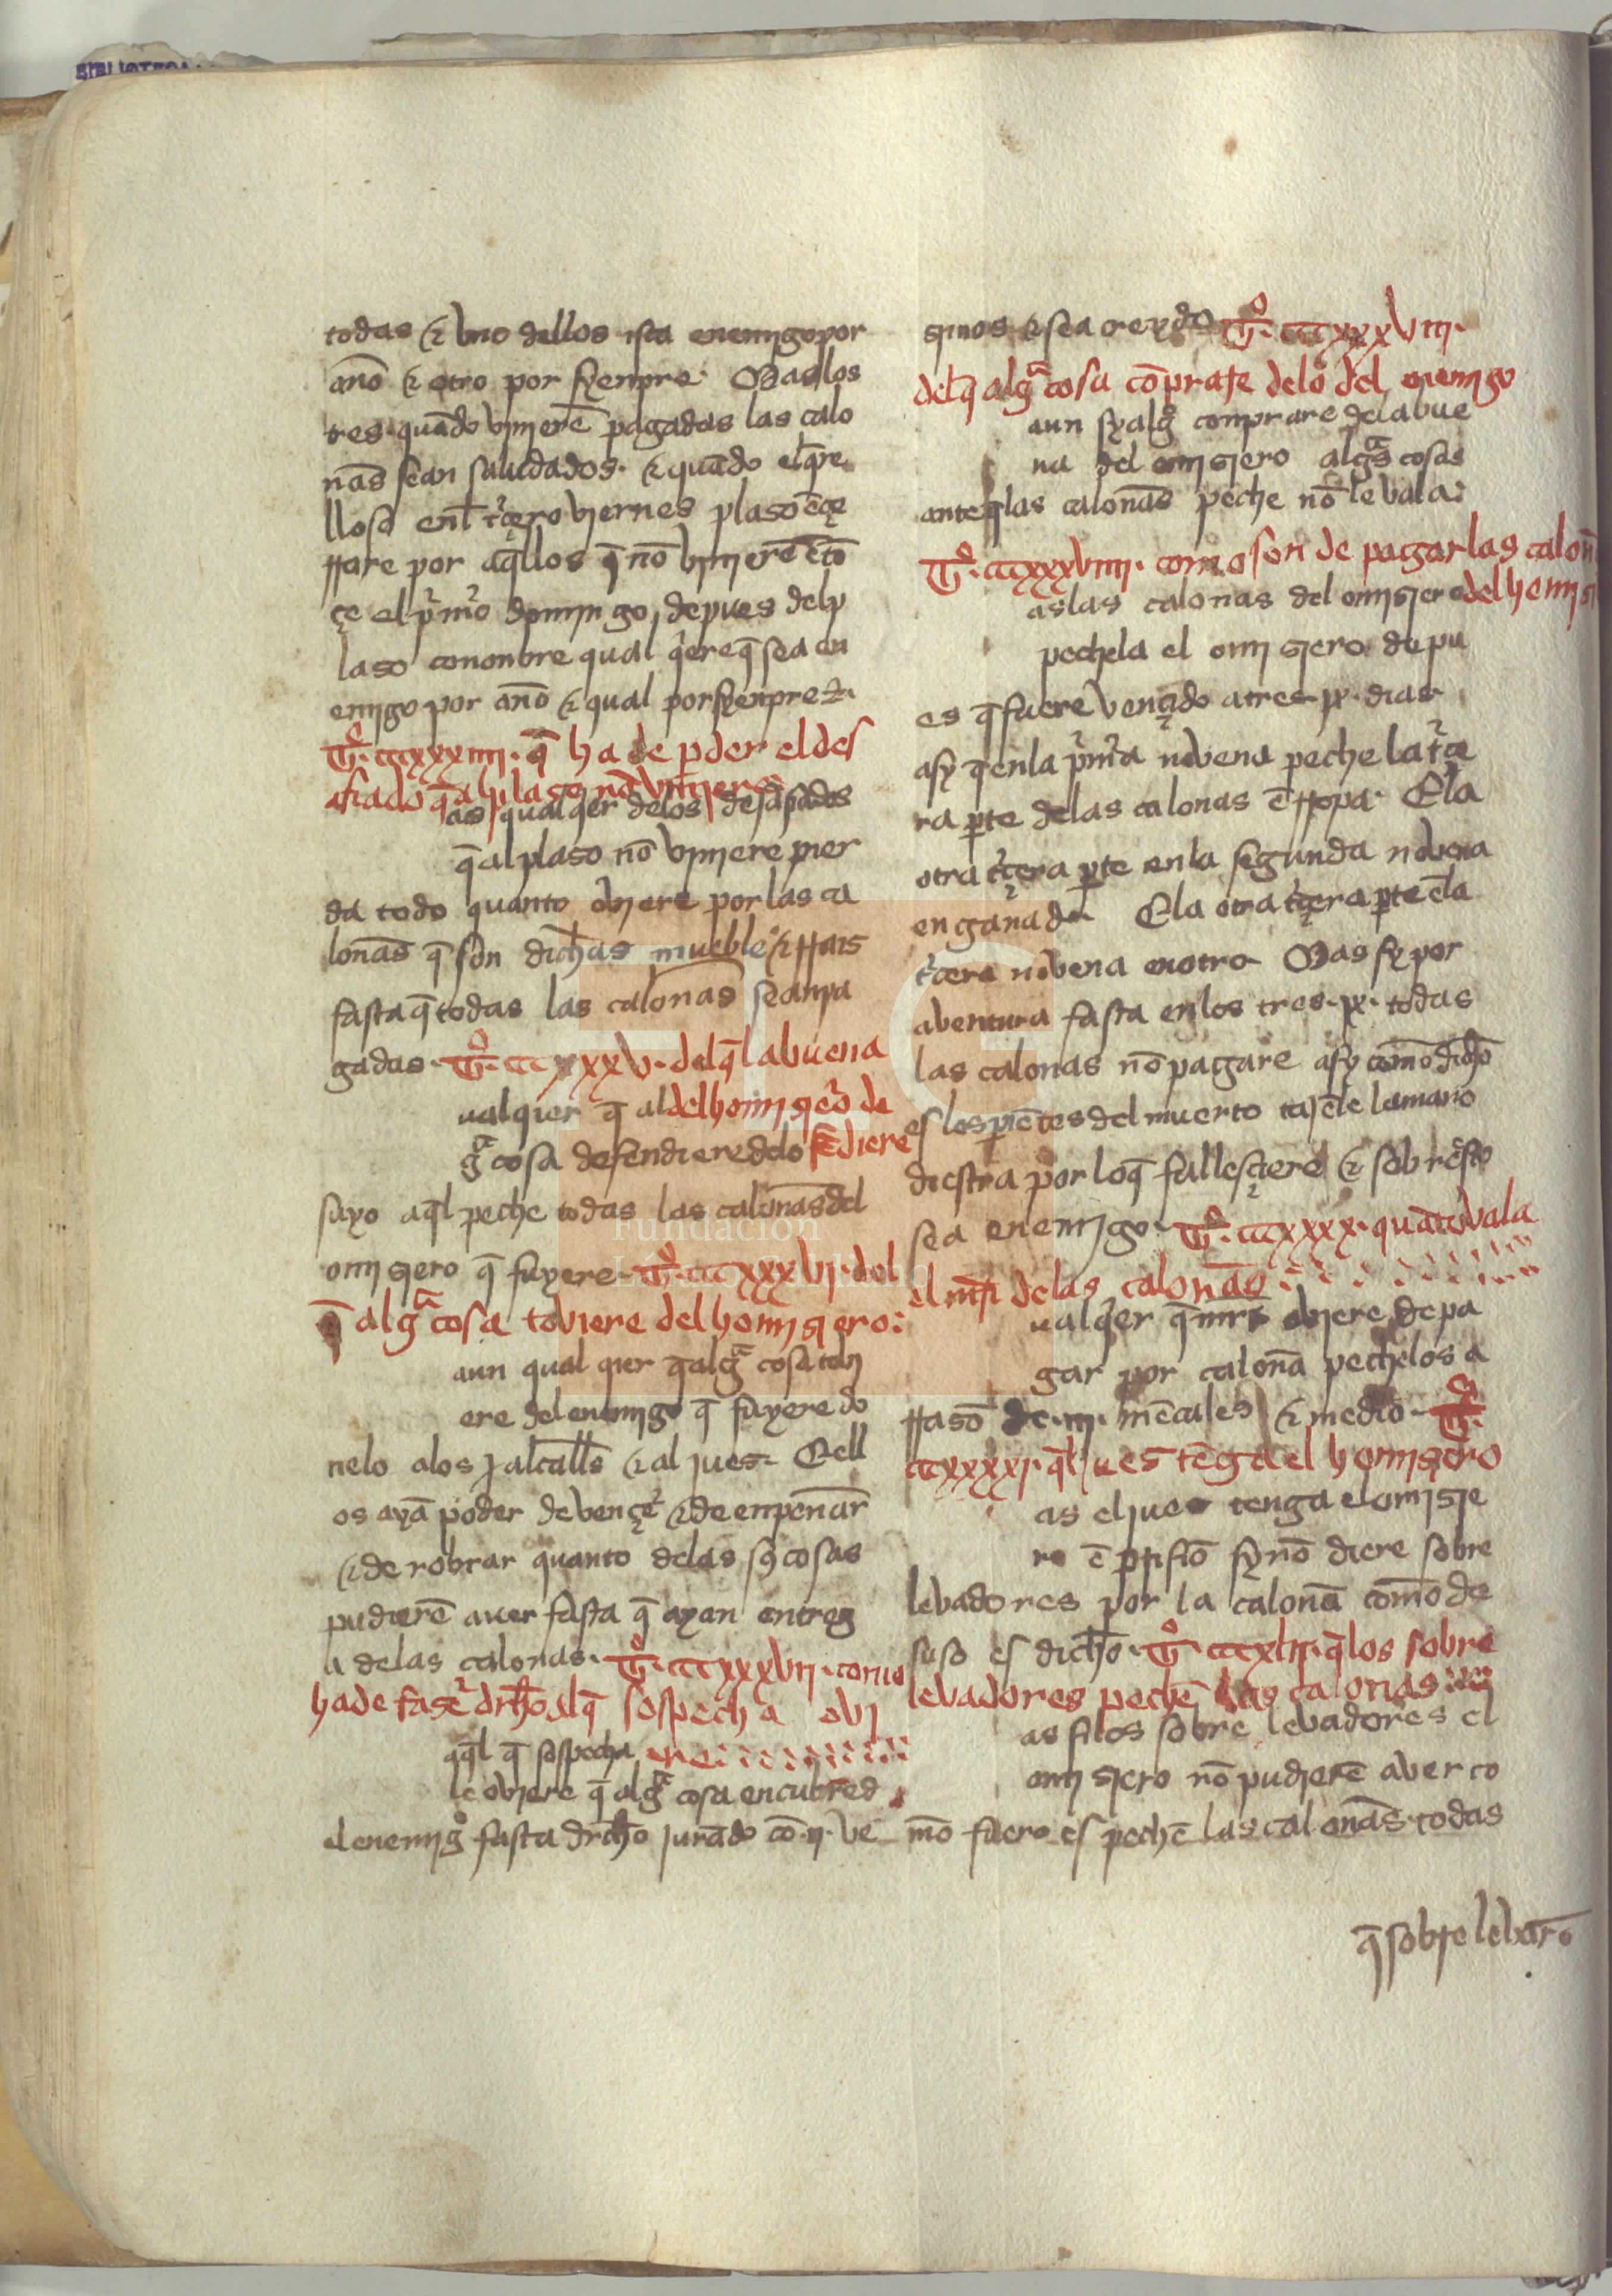 todas ⁊ vno dellos ista enemigo por
anõ ⁊ otro por syenpre. Mas los
tres quãdo vinierẽ pagadas las calo
nãs sean saludados. ⁊ quãdo el q̃re
lloso enl t̃çero viernes plaso ẽçe
rrare por aq̃llos q̃ nõ vinierẽ ẽtõ
çe el p̃mo domingo depues del p
laso connonbre qual q̃ere q̃ sea en
emigo por anõ ⁊ qual por syenpre
Tº. ccxxxiiii. q̃ ha de pder el des
afiado q̃ al plaso nõ viniere
as qualq̃er delos desafiados
q̃ al plaso nõ viniere pier
da todo quanto oviere por las ca
lonãs q̃ son dichas mueble ⁊ rrais
fasta q̃ todas las calonas sean pa
gadas. Tº. ccxxxv. del q̃ la buena
ualquier q̃ al del homiçiero de
gª cosa defendiere delo fẽdiere
suyo aq̃l peche todas las calonas del
omiçiero q̃ fuyere. Tº. ccxxxvi. del
q̃ algª cosa toviere del homiçiero:
aun qual quier q̃ algª cosa tovi
ere del enemigo q̃ fuyere do
nelo alos alcalls ⁊ al jues. E ell
os ayã poder de vençẽ ⁊ de enpenãr
⁊ de robrar quanto delas sus cosas
pudierẽ aver fasta q̃ ayan entreg
a delas calonas. Tº. ccxxxvii. como
ha de fasẽ drcho el q̃ sospecha ovi
aq̃l q̃ sospecha ere
le oviere q̃ algª cosa encubre d
el enemigº fasta drcho jurãdo cõ .ii. ve
sinos ⁊ sea creydo Tº. ccxxxviii.
del q̃ algª cosa cõprare delo del enemigo
aun sy algº comprare dela bue
na del omiçiero algªs cosas
ante q̃ las calonãs peche nõ le vala:
Tº. ccxxxviiii. como son de pagar las calon
as las calonas del omiçiero del homiçi
pechela el omiçiero depu
es q̃ fuere vençido a tres .ix. dias
asy q̃ en la p̃mra novena peche la t̃çe
ra pte delas calonas ẽ rropa. E la
otra t̃çera pte en la segunda novena
en ganado. E la otra t̃çera pte ẽ la
t̃çera novena en otro Mas sy por
aventura fasta en los tres .ix. todas
las calonas nõ pagare asy comõ dicho
es los piẽtes del muerto tajẽle la mano
diestra por lo q̃ fallesçiere ⁊ sobr esto
sea enemigo. Tº. ccxxxx. quãto vala
el mr̃i delas calonãs
ualq̃er q̃ mrs oviere de pa
gar por calonã pechelos a
rrasõ de .iii. mẽcales ⁊ medio. Tº.
ccxxxxi. q̃l jues tẽga el homiçiero
as el jues tenga el omiçie
ro ẽ prisiõ sy nõ diere sobre
levadores por la calonã comõ de
suso es dicho. Tº. ccxlii. q̃ los sobre
levadores pechẽ las calonas
as si los sobre levadores el
omiçiero nõ pudierẽ aver co
mõ fuero es pechẽ las calonãs todas
q̃ sobrelebarõ